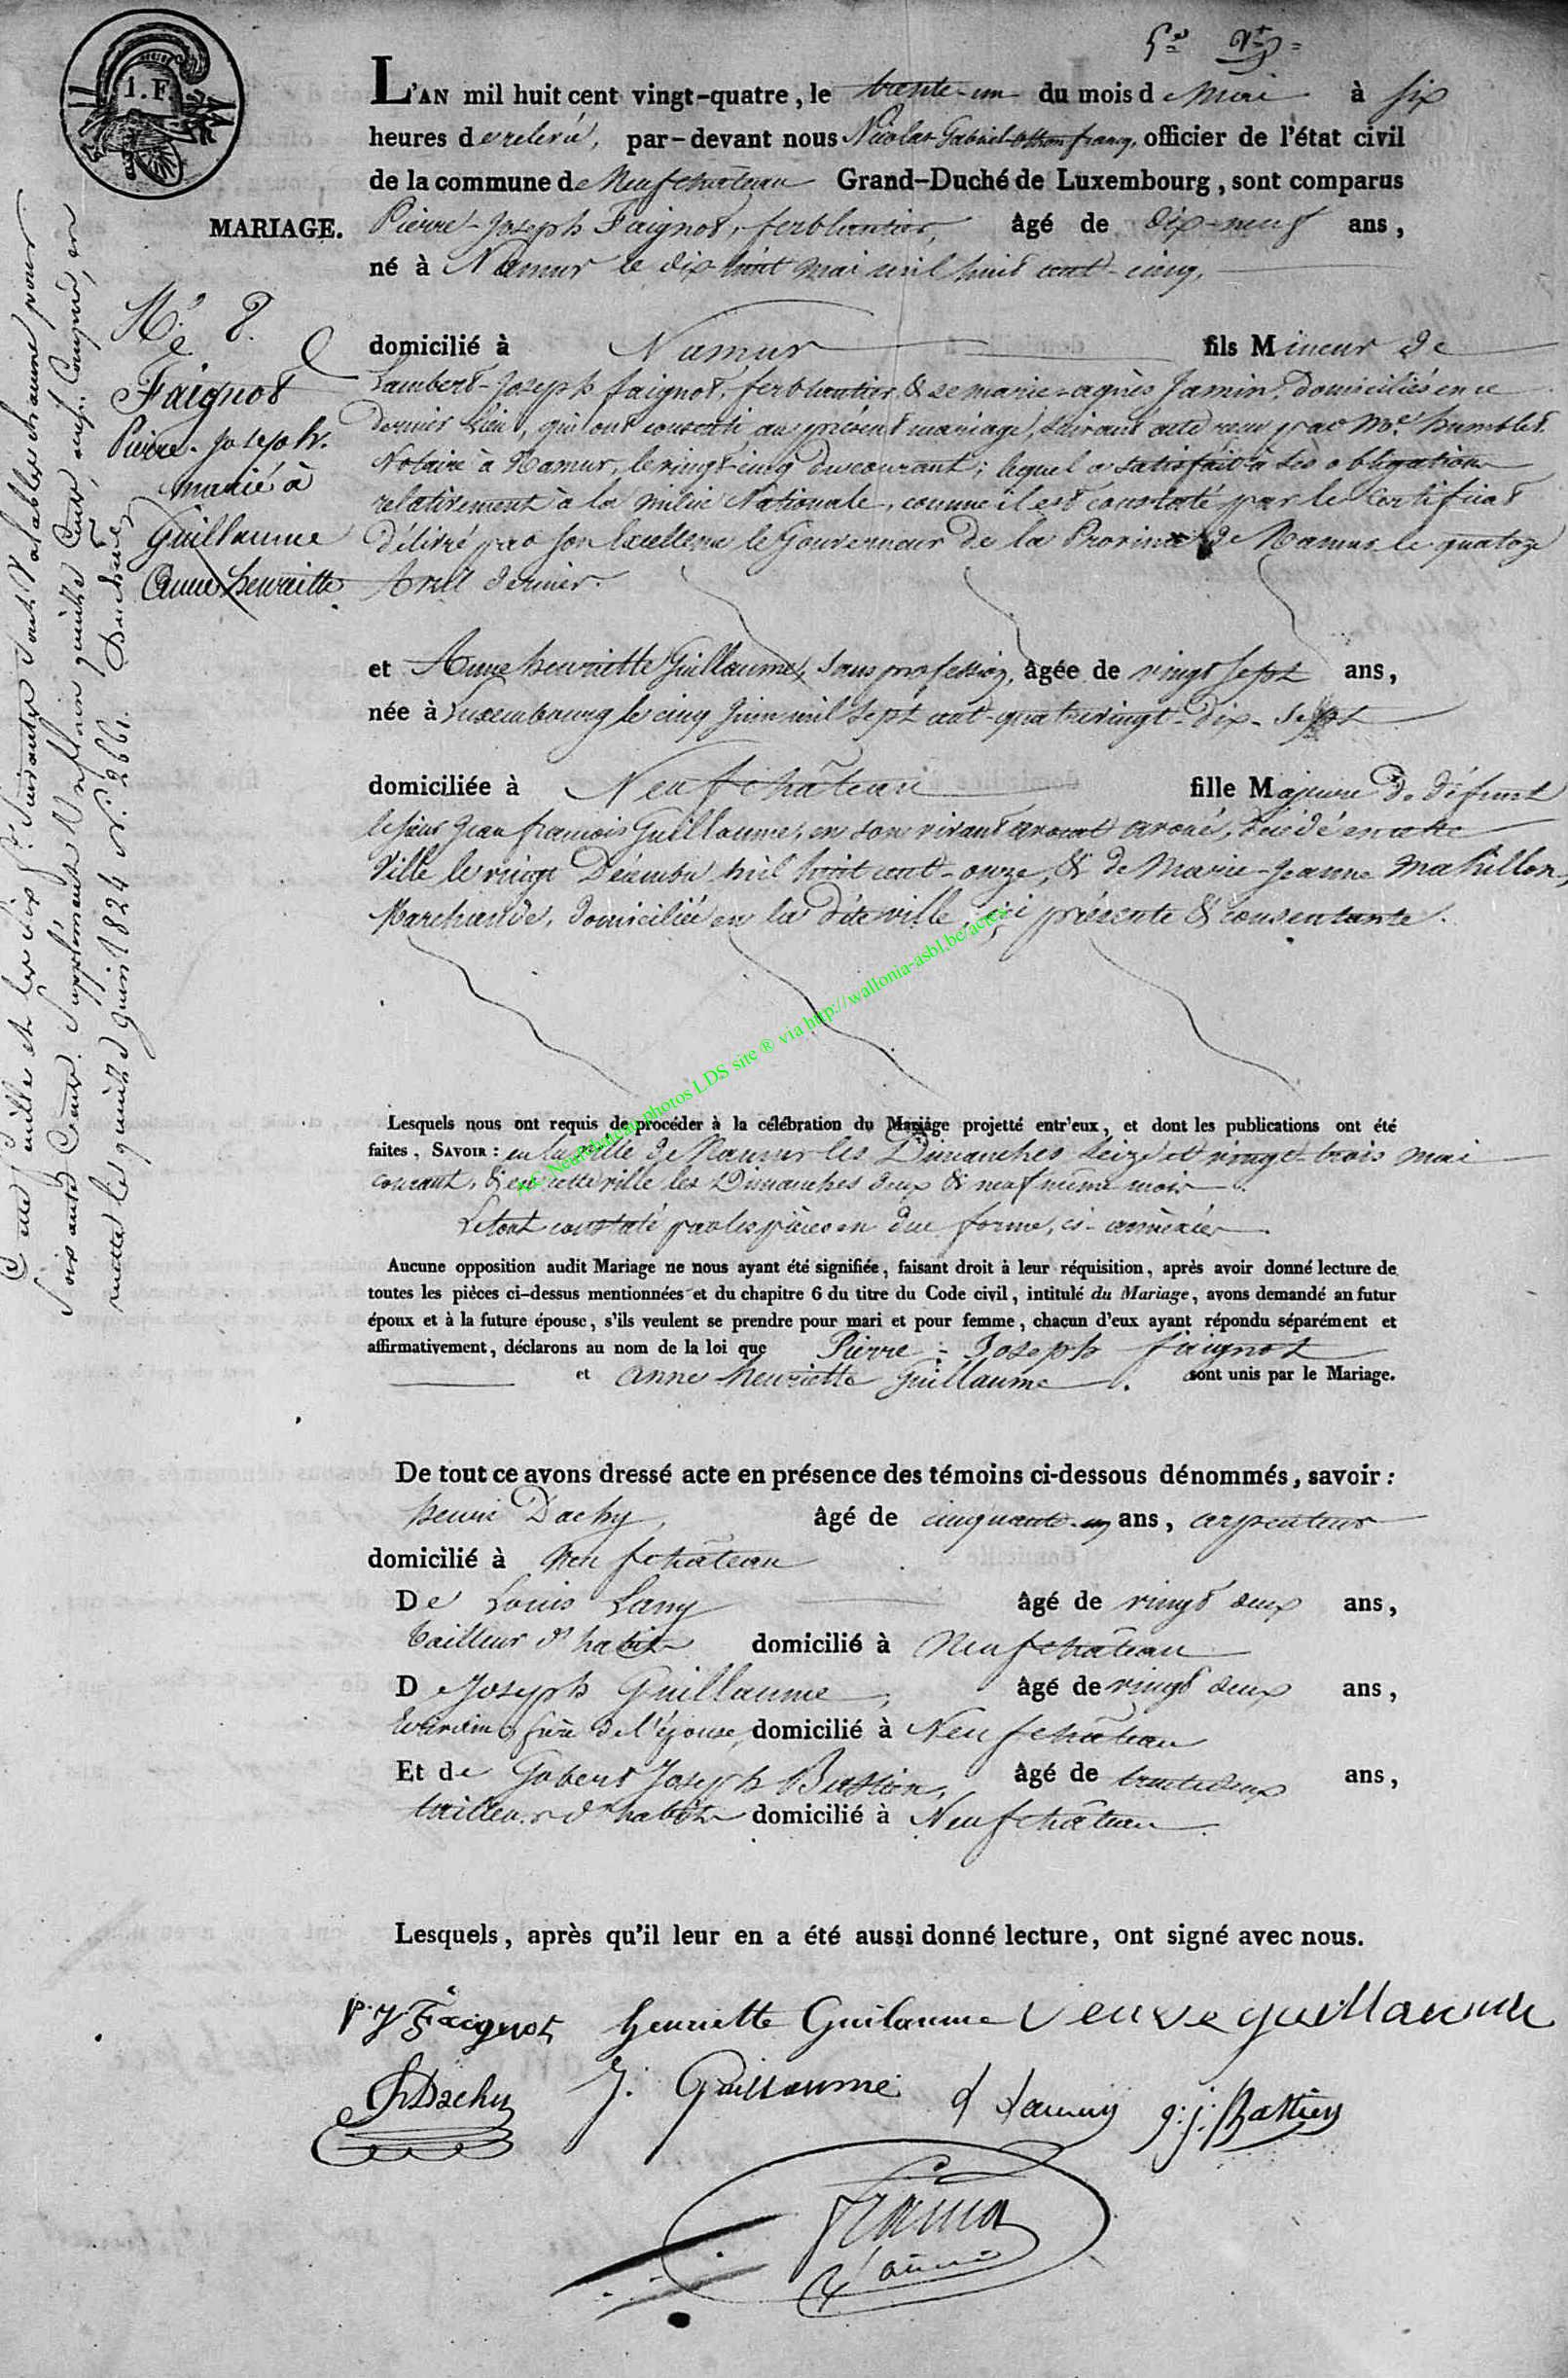 L'AN mil huit cent vingt-quatre, le trente-un du mois de Mai à six
heures de relevée, par-devant nous Nicolas Gabriel Othon francq, officier de l'état civil
de la commune de Neufchâteau Grand-Duché de Luxembourg, sont comparus
Pierre-Joseph Faignot, ferblantier, âgé de dix-neuf ans,
né à Namur le dix huit mai mil huit cent-cinq,
domicilié à Namur fils Mineur de
Lambert-Joseph faignot, ferblantier, & de marie-agnès Jamin, domiciliés en ce
dernier lieu, qui ont consenti au présent mariage, suivant acte reçu par Me. humblet
Notaire à Namur, le vingt-cinq du courant; lequel a satisfait à ses obligations
relativement à la milice Nationale, comme il est constaté par le Certificat
Délivré par son Excellence le Gouverneur de la Province de Namur le quatorze
Avril dernier.
et Anne henriette Guillaume, sans profession, âgée de vingt sept ans,
née à Luxembourg le cinq Juin mil sept cent-quatrevingt-dix-sept
domiciliée à Neufchâteau fille Majeure de défunt
le sieur Jean françois Guillaume, en son vivant avocat avoué, décédé en cette
Ville le vingt Décembre mil huit cent-onze, & de Marie-Jeanne Mahillon,
Marchande, domiciliée en la dite ville, ici présente & consentante.
Lesquels nous ont requis de procéder à la célébration du Mariage projetté entr'eux, et dont les publications ont été
faites, SAVOIR : en la ville de Namur les Dimanches seize et vingt-trois mai
courant, & en cette ville les Dimanches deux & neuf même mois
Le tout constaté par les pièces en due forme, ci-annexées
Aucune opposition audit Mariage ne nous ayant été signifiée, faisant droit à leur réquisition, après avoir donné lecture de
toutes les pièces ci-dessus mentionnées et du chapitre 6 du titre du Code civil, intitulé du Mariage, avons demandé au futur
époux et à la future épouse, s'ils veulent se prendre pour mari et pour femme, chacun d'eux ayant répondu séparément et
affirmativement, déclarons au nom de la loi que Pierre-Joseph faignot
et anne henriette Guillaume. sont unis par le Mariage.
De tout ce avons dressé acte en présence des témoins ci-dessous dénommés, savoir :
henri Dachy, âgé de cinquante-un ans, arpenteur
domicilié à Neufchâteau
De Louis Lamy âgé de vingt deux ans,
tailleur d'habits domicilié à Neufchâteau
De Joseph Guillaume, âgé de vingt deux ans,
Ecrivain, frère de l'épouse, domicilié à Neufchâteau
Et de Gobert Joseph Bastien, âgé de trente deux ans,
tailleur d'habits domicilié à Neufchâteau
Lesquels, après qu'il leur en a été aussi donné lecture, ont signé avec nous.
P. J. Faignot henriette Guilaume Veuve guillaume
h Dachy J. Guillaume Lamy g: j: Bastien
francq
L'ainé
1. F.
MARIAGE.
No. 8.
Faignot
Pierre-Joseph.
marié à
Guillaume
Anne henriette
Cette feuille et les dix Sept Suivantes sont Valables chacune pour
Soixante Cents. Supplément un florin quinze Cents, aussi Compris, en
recette le quinze Juin 1824 N° 2661.
AC Neufchateau photos LDS site ® via http://wallonia-asbl.be/actes